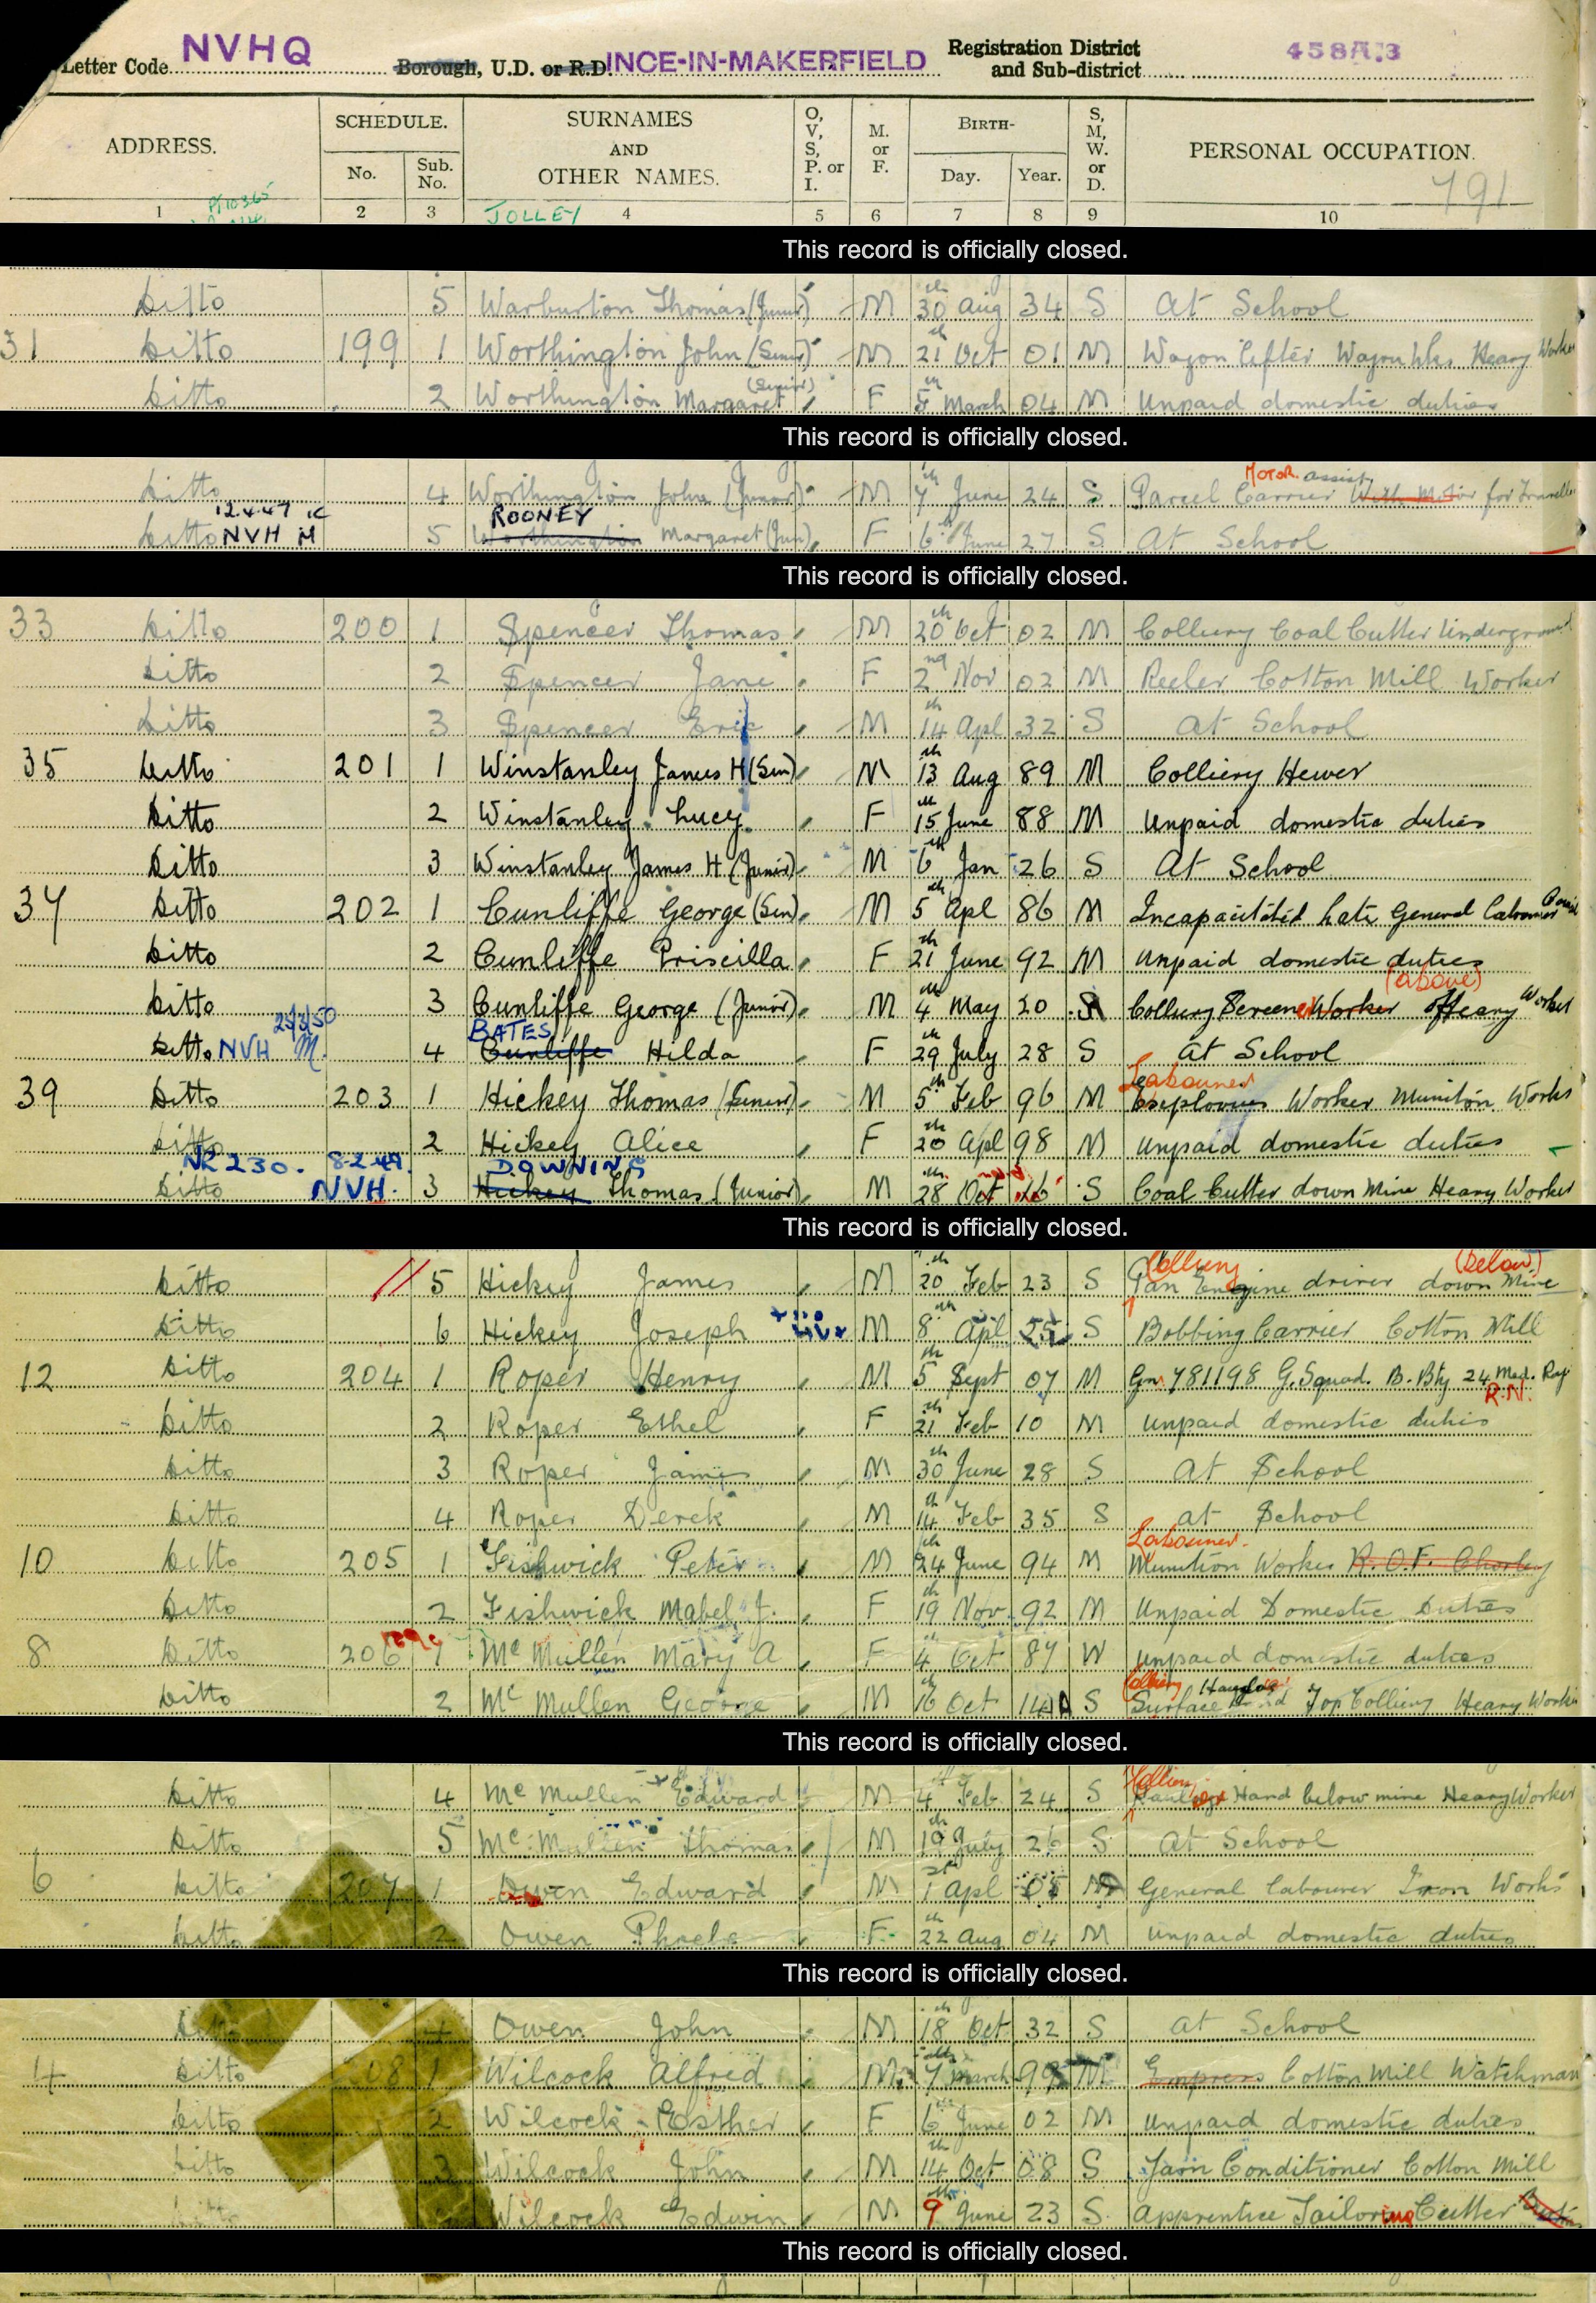 Letter Code NVHQ Borough, U.D. or R.D. INCE-IN-MAKERFIELD Registration District and Sub-district 458/1.3
ADDRESS. SCHEDULE. No. Sub. No. SURNAMES AND OTHER NAMES. O, V, S, P. or I. M. or F. BIRTH- Day. Year. S, M, W. or D. PERSONAL OCCUPATION. 791
1 2 3 JOLLEY 4 5 6 7 8 9 10
This record is officially closed.
Ditto 5 Warburton Thomas (Junior) M 30th Aug 34 S At School
31 Ditto 199 1 Worthington John (Senior) M 21th Oct 01 M Wagon Lifter Wagon Wks Heavy Worker
Ditto 2 Worthington Margaret (Senior) F 5th March 04 M Unpaid domestic duties
This record is officially closed.
Ditto 4 Worthington John (Junior) M 7th June 24 S Parcel Carrier With Motor MOTOR assist for Traveller
12.4.47 ROONEY
Ditto NVH M 5 Worthington Margaret (Jun) F 6th June 27 S At School
This record is officially closed.
33 Ditto 200 1 Spencer Thomas M 20th Oct 02 M Colliery Coal Cutter Underground
Ditto 2 Spencer Jane F 2nd Nov 02 M Reeler Cotton Mill Worker
Ditto 3 Spencer Eric M 14th Apl 32 S At School
35 Ditto 201 1 Winstanley James H (Sen) M 13th Aug 89 M Colliery Hewer
Ditto 2 Winstanley Lucy F 15th June 88 M Unpaid domestic duties
Ditto 3 Winstanley James H (Junior) M 6th Jan 26 S At School
37 Ditto 202 1 Cunliffe George (Sen) M 5th Apl 86 M Incapacitated Late General Labourer
Ditto 2 Cunliffe Priscilla F 21th June 92 M Unpaid domestic duties
(above)
Ditto 3 Cunliffe George (Junior) M 4th May 20 S Colliery Screener Worker Heavy Worker
25/3/50 BATES
Ditto NVH M. 4 Cunliffe Hilda F 29th July 28 S At School
Labourer
39 Ditto 203 1 Hickey Thomas (Senior) M 5th Feb 96 M Explosives Worker Munition Works
Ditto 2 Hickey Alice F 20th Apl 98 M Unpaid domestic duties
NR 230. 8-2-49. DOWNING
Ditto NVH. 3 Hickey Thomas (Junior) M 28th Oct 16 S Coal Cutter down Mine Heavy Worker
This record is officially closed.
Colliery (Below)
Ditto 5 Hickey James M 20th Feb 23 S Fan Engine driver down Mine
Ditto 6 Hickey Joseph M 8th Apl 25 S Bobbing Carrier Cotton Mill
12 Ditto 204 1 Roper Henry M 5th Sept 07 M Gnr 781198 G. Squad. B. Bty 24 Med. Reg
R.N.
Ditto 2 Roper Ethel F 21th Feb 10 M Unpaid domestic duties
Ditto 3 Roper James M 30th June 28 S At School
Ditto 4 Roper Derek M 14th Feb 35 S at School
Labourer.
10 Ditto 205 1 Fishwick Peter M 24th June 94 M Munition Worker R.O.F. Chorley
Ditto 2 Fishwick Mabel J. F 19th Nov 92 M Unpaid Domestic Duties
8 Ditto 206 1 McMullen Mary A F 4th Oct 87 W Unpaid domestic duties
Colliery
Ditto 2 McMullen George M 16th Oct 14 S Surface Top Colliery Heavy Worker
This record is officially closed.
Colliery
Ditto 4 McMullen Edward M 4th Feb 24 S Haulage Hand below mine Heavy Worker
Ditto 5 McMullen Thomas M 19th July 26 S At School
6 Ditto 207 1 Owen Edward M 1st Apl 05 M General Labourer Iron Works
Ditto 2 Owen Phoebe F 22th Aug 04 M Unpaid domestic duties
This record is officially closed.
Ditto 4 Owen John M 18th Oct 32 S At School
4 Ditto 208 1 Wilcock Alfred M 7th March 99 M Empress Cotton Mill Watchman
Ditto 2 Wilcock Esther F 6th June 02 M Unpaid domestic duties
Ditto 3 Wilcock John M 14th Oct 08 S Yarn Conditioner Cotton Mill
Ditto Wilcock Edwin M 9th June 23 S Apprentice Tailoring Cutter
This record is officially closed.